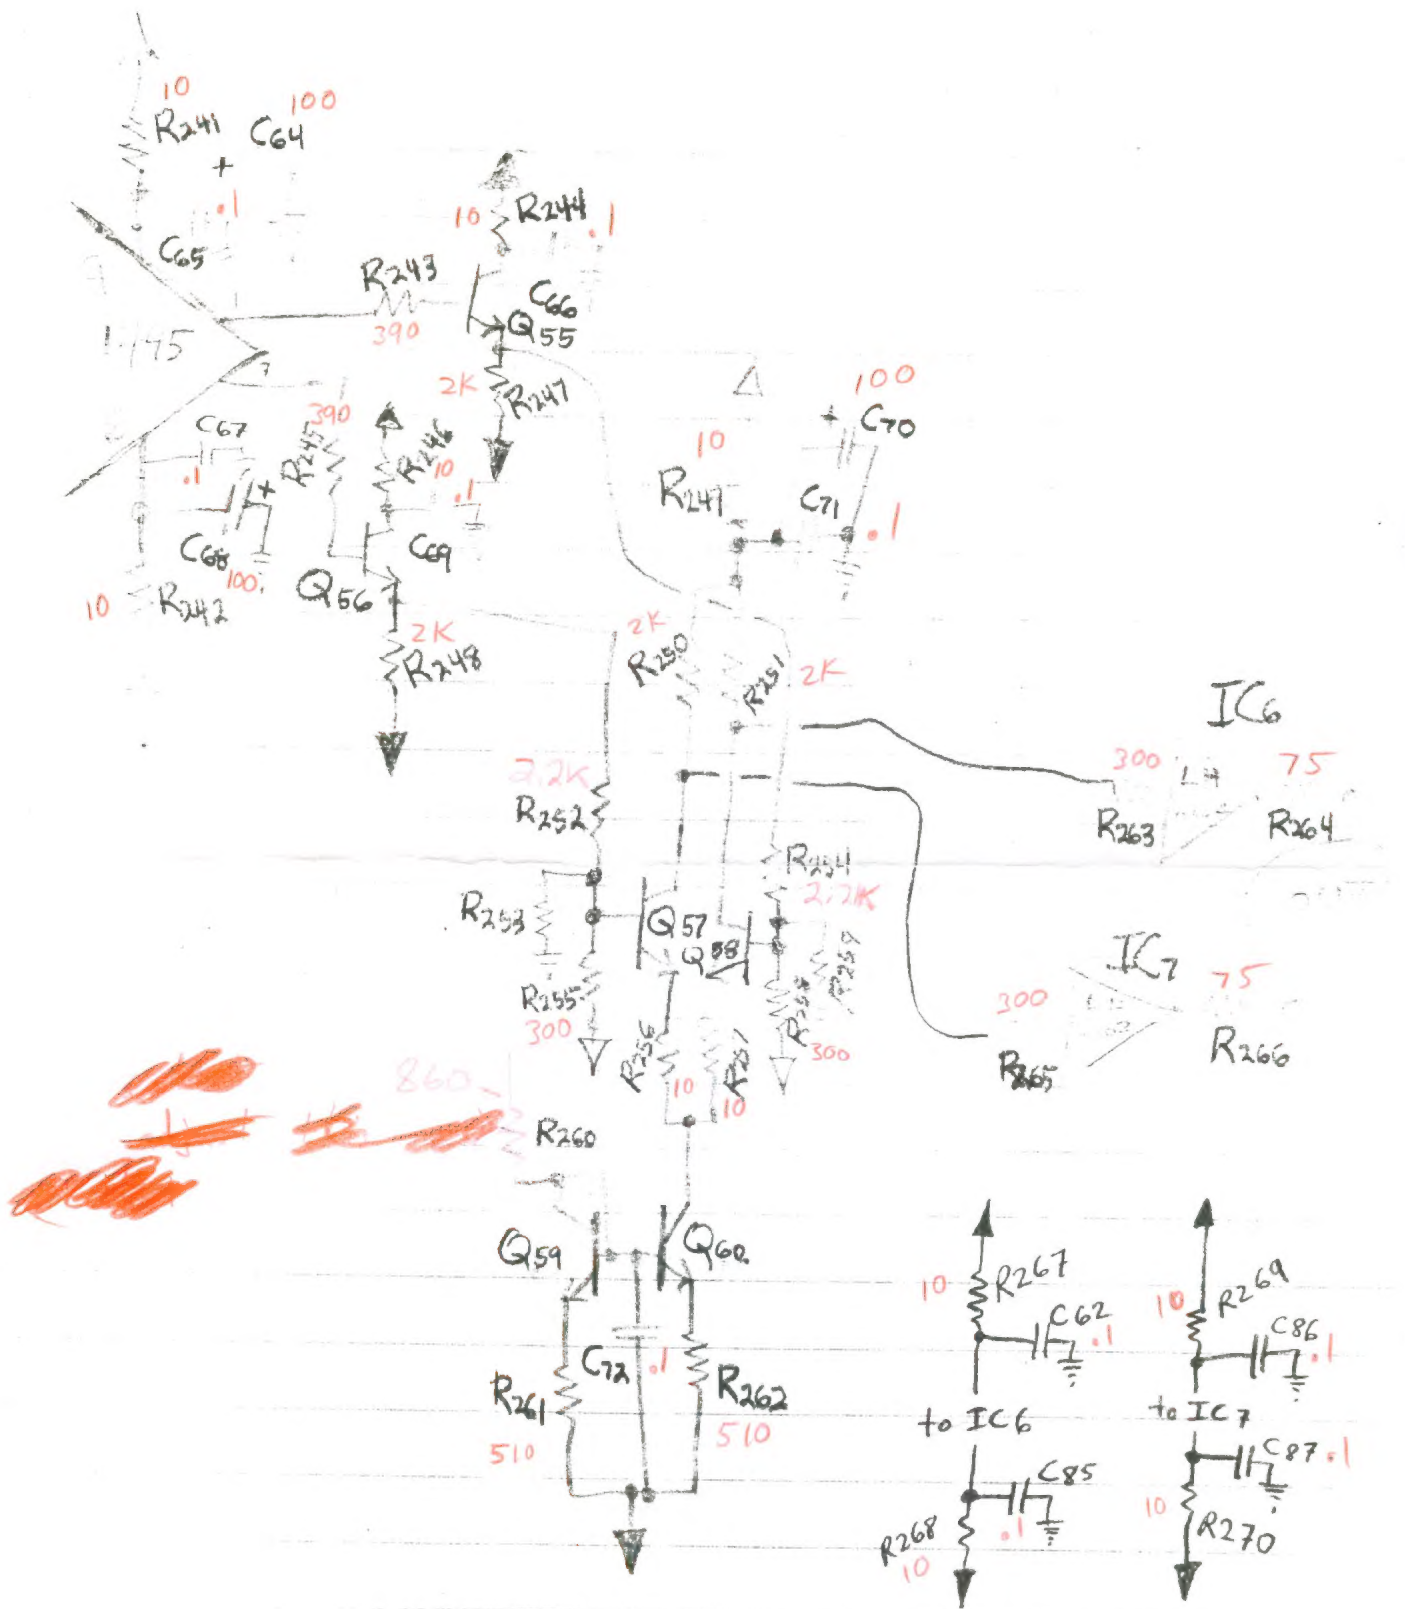 10
R241
+
C64
100
.1
C65
10
R244
.1
R243
390
C66
Q55
2K
R247
C67
.1
390
R245
R246
10
.1
+
C68
100
C69
10
R242
Q56
2K
R248
100
+
C70
10
R247
C71
.1
2K
R250
R251
2K
IC6
300
LH
75
R263
R264
2.2K
R252
R254
2.2K
R253
Q57
Q58
R259
R258
R255
300
R256
R257
10
10
300
IC7
300
75
R265
R266
860
R260
Q59
Q60
C72
.1
R261
510
R262
510
10
R267
C62
.1
to IC6
C85
.1
R268
10
10
R269
C86
.1
to IC7
C87
.1
10
R270